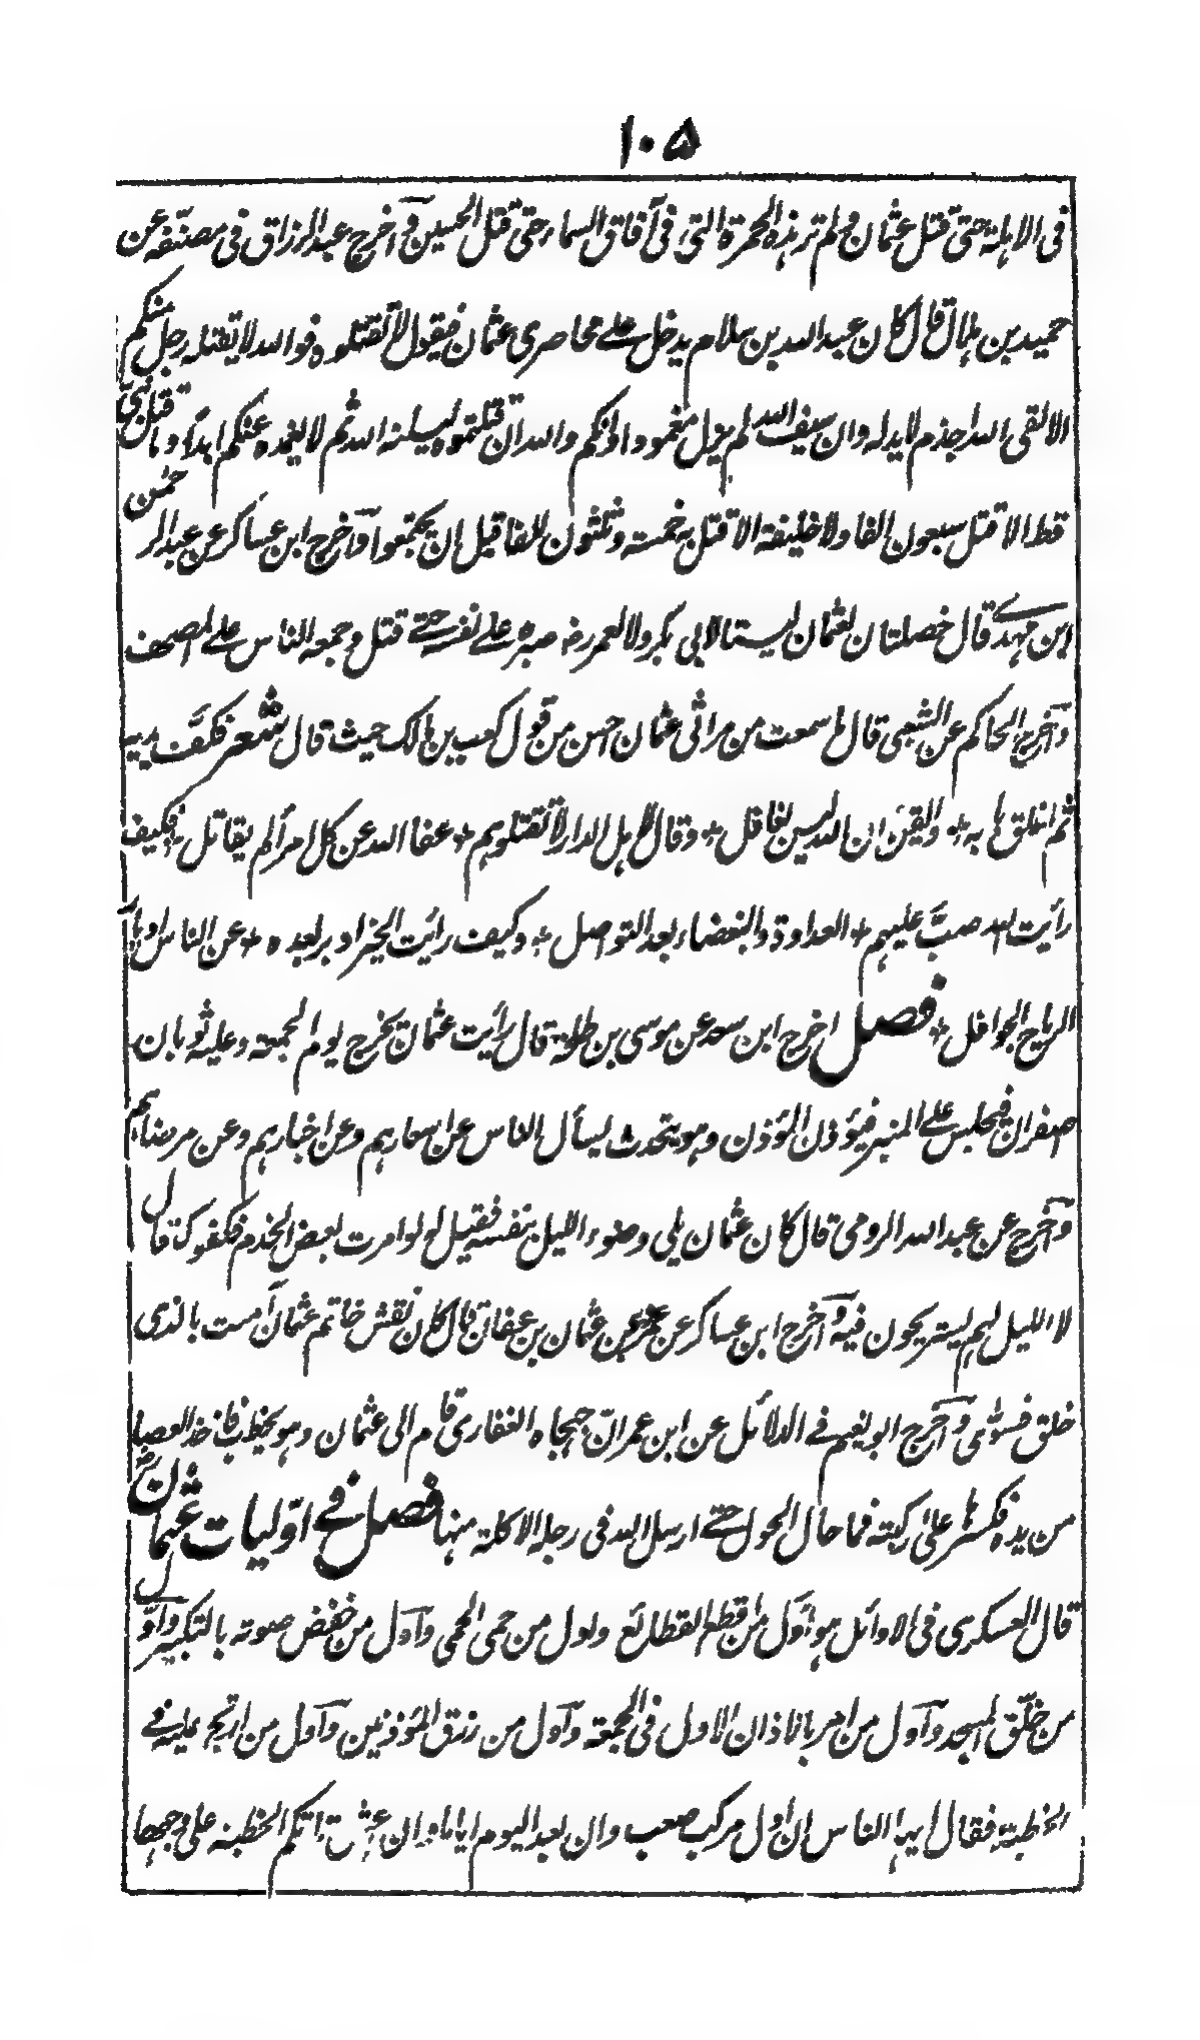 ۱۰۵
فى الاهلة حتى قتل عثمان ولم تر هذه الحمرة التى فى آفاق السماء حتى قتل الحسين وآخرج عبد الرزاق فى مصنّفه عن
حميد بن هلال قال كان عبد الله بن سلام يدخل على محاصرى عثمان فيقول لا تقتلوه فوالله لا يقتله رجل منكم
الا لقى الله اجذم لا يد له وان سيف الله لم يزل مغمودا وانكم والله ان قتلتموه ليسلنه الله ثم لا يغمده عنكم ابدًا وما قتل نبىّ
قط الا قتل به سبعون الفا ولا خليفة الا قتل به خمسة وثلثون الفا قبل ان يجتمعوا وآخرج ابن عساكر عن عبد الرحمٰن
ابن مهدے قال خصلتان لعثمان ليستا لابى بكر ولا لعمر رض صبره على نفسه حتے قتل وجمعه الناس على المصحف
وآخرج الحاكم عن الشعبى قال ما سمعت من مراثى عثمان احسن من قول كعب بن مالك حيث قال شعر فكفّ يديه
ثم اغلق بابه + وايقن ان الله ليس بغافل + وقال لاهل الدار لا تقتلوهم + عفا الله عن كل امرأ لم يقاتل + فكيف
رأيت الله صبّ عليهم + العداوة والبغضاء بعد التواصل + وكيف رأيت الخير ادبر بعده + عن الناس ادبار
الرياح الجوافل + فصل اخرج ابن سعد عن موسى بن طلحة قال رأيت عثمان يخرج يوم الجمعة وعليه ثوبان
اصفران فيجلس على المنبر فيؤذن المؤذن وهو يتحدث يسأل الناس عن اسعارهم وعن اخبارهم وعن مرضاهم
وآخرج عن عبد الله الرومى قال كان عثمان يلى وضوء الليل بنفسه فقيل له لو امرت بعض الخدم فكفوك قال
لا الليل لهم يستريحون فيه وآخرج ابن عساكر عن عمرو بن عثمان بن عفان قال كان نقش خاتم عثمان آمنت بالذى
خلق فسوّى وآخرج ابو نعيم فے الدلائل عن ابن عمر انّ جهجاه الغفارى قام الى عثمان وهو يخطب فاخذ العصا
من يده فكسرها على ركبته فما حال الحول حتے ارسل الله فى رجله الاكلة منها فصل فے اوّليات عثمان رض
قال العسكرى فى الاوائل هو اوّل من اقطع القطائع واول من حمى الحمى وآول من خفض صوته بالتكبير وآوّل
من خلّق المسجد وآول من امر بالاذان الاول فى الجمعة وآول من رزق المؤذنين وآول من ارتج عليه فے
الخطبة فقال ايها الناس ان اول مركب صعب وان بعد اليوم اياما وان اعش تاتكم الخطبة على وجهها